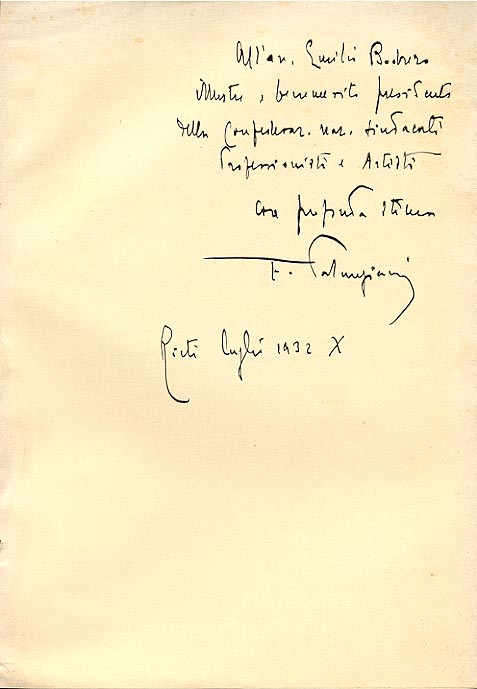 All'on. Emilio Bodrero
illustre, benemerito presidente
della Confederaz. naz. sindacati
Professionisti e Artisti
con profonda stima
F. Palmegiani
Rieti luglio 1932 X